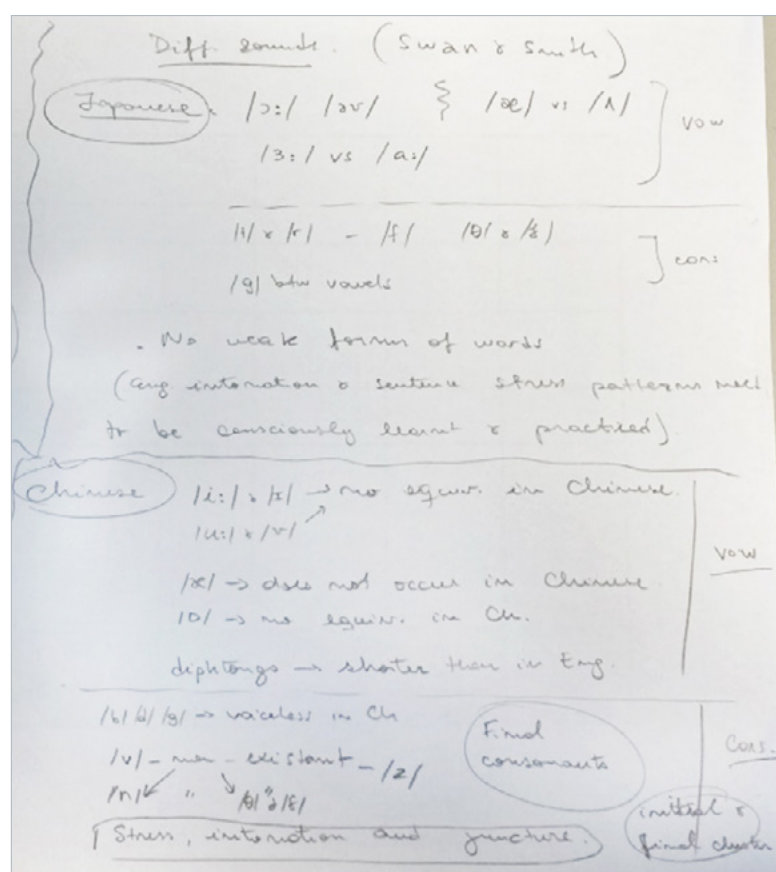 Diff. sounds. (Swan & Smith)
Japanese. /ɔ:/ /əʊ/ /æ/ vs /ʌ/ vow
/ɜ:/ vs /a:/
/l/ & /r/ - /f/ /θ/ & /ð/ cons
/g/ btw vowels
. No weak forms of words
(eng. intonation & sentence stress patterns need
to be consciously learnt & practised)
Chinese /i:/ & /ɪ/ → no equiv. in Chinese.
/u:/ & /ʊ/
vow
/æ/ → does not occur in Chinese
/ɒ/ → no equiv. in Ch.
diphtongs → shorter than in Eng.
/b/ /d/ /g/ → voiceless in Ch
Final
consonants
Cons.
/v/ - non - existant - /z/
/n/ " /θ/ & /ð/
initial &
final cluster
Stress, intonation and juncture.